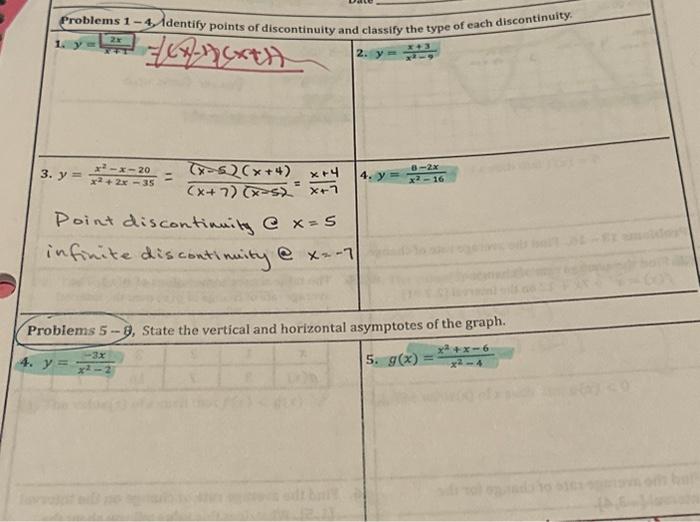 Problems 1 – 4, Identify points of discontinuity and classify the type of each discontinuity.
1. y = 2x/x+1 = (x-1)(x+1)
2. y = x+3/x²-9
3. y = x²-x-20/x²+2x-35 = (x-5)(x+4)/(x+7)(x-5) = x+4/x+7
Point discontinuity @ x=5
infinite discontinuity @ x=-7
4. y = 8-2x/x²-16
Problems 5 – 8, State the vertical and horizontal asymptotes of the graph.
4. y = -3x/x²-2
5. g(x) = x²+x-6/x²-4